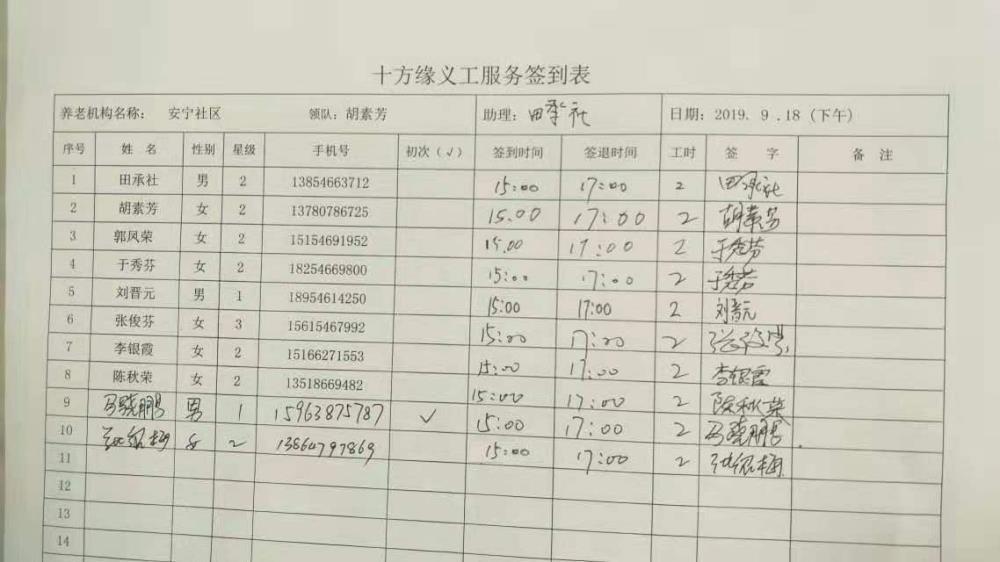 十方缘义工服务签到表
养老机构名称： 安宁社区 领队：胡素芳 助理：田承社 日期：2019. 9 .18（下午）
序号 姓 名 性别 星级 手机号 初次（√） 签到时间 签退时间 工时 签 字 备 注
1 田承社 男 2 13854663712 15:00 17:00 2 田承社
2 胡素芳 女 2 13780786725 15.00 17:00 2 胡素芳
3 郭凤荣 女 2 15154691952 15.00 17:00 2 于秀芬
4 于秀芬 女 2 18254669800 15:00 17:00 2 于秀芬
5 刘晋元 男 1 18954614250 15:00 17:00 2 刘晋元
6 张俊芬 女 3 15615467992 15:00 17:00 2
7 李银霞 女 2 15166271553 15:00 17:00 2 李银霞
8 陈秋荣 女 2 13518669482 15:00 17:00 2 陈秋荣
9 马晓鹏 男 1 15963875787 √ 15:00 17:00 2 马晓鹏
10 女 2 13864797869 15:00 17:00 2
11
12
13
14